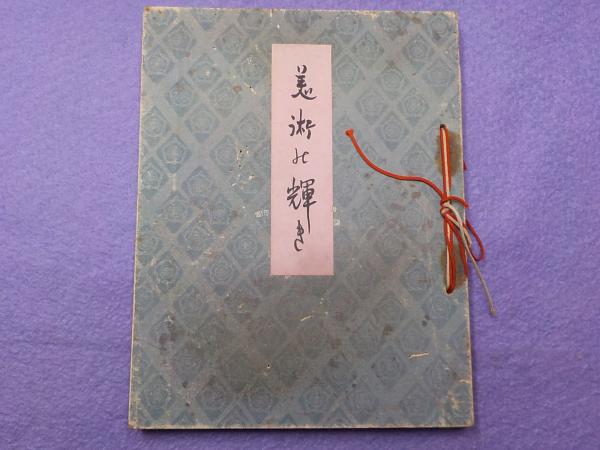 美術の輝き